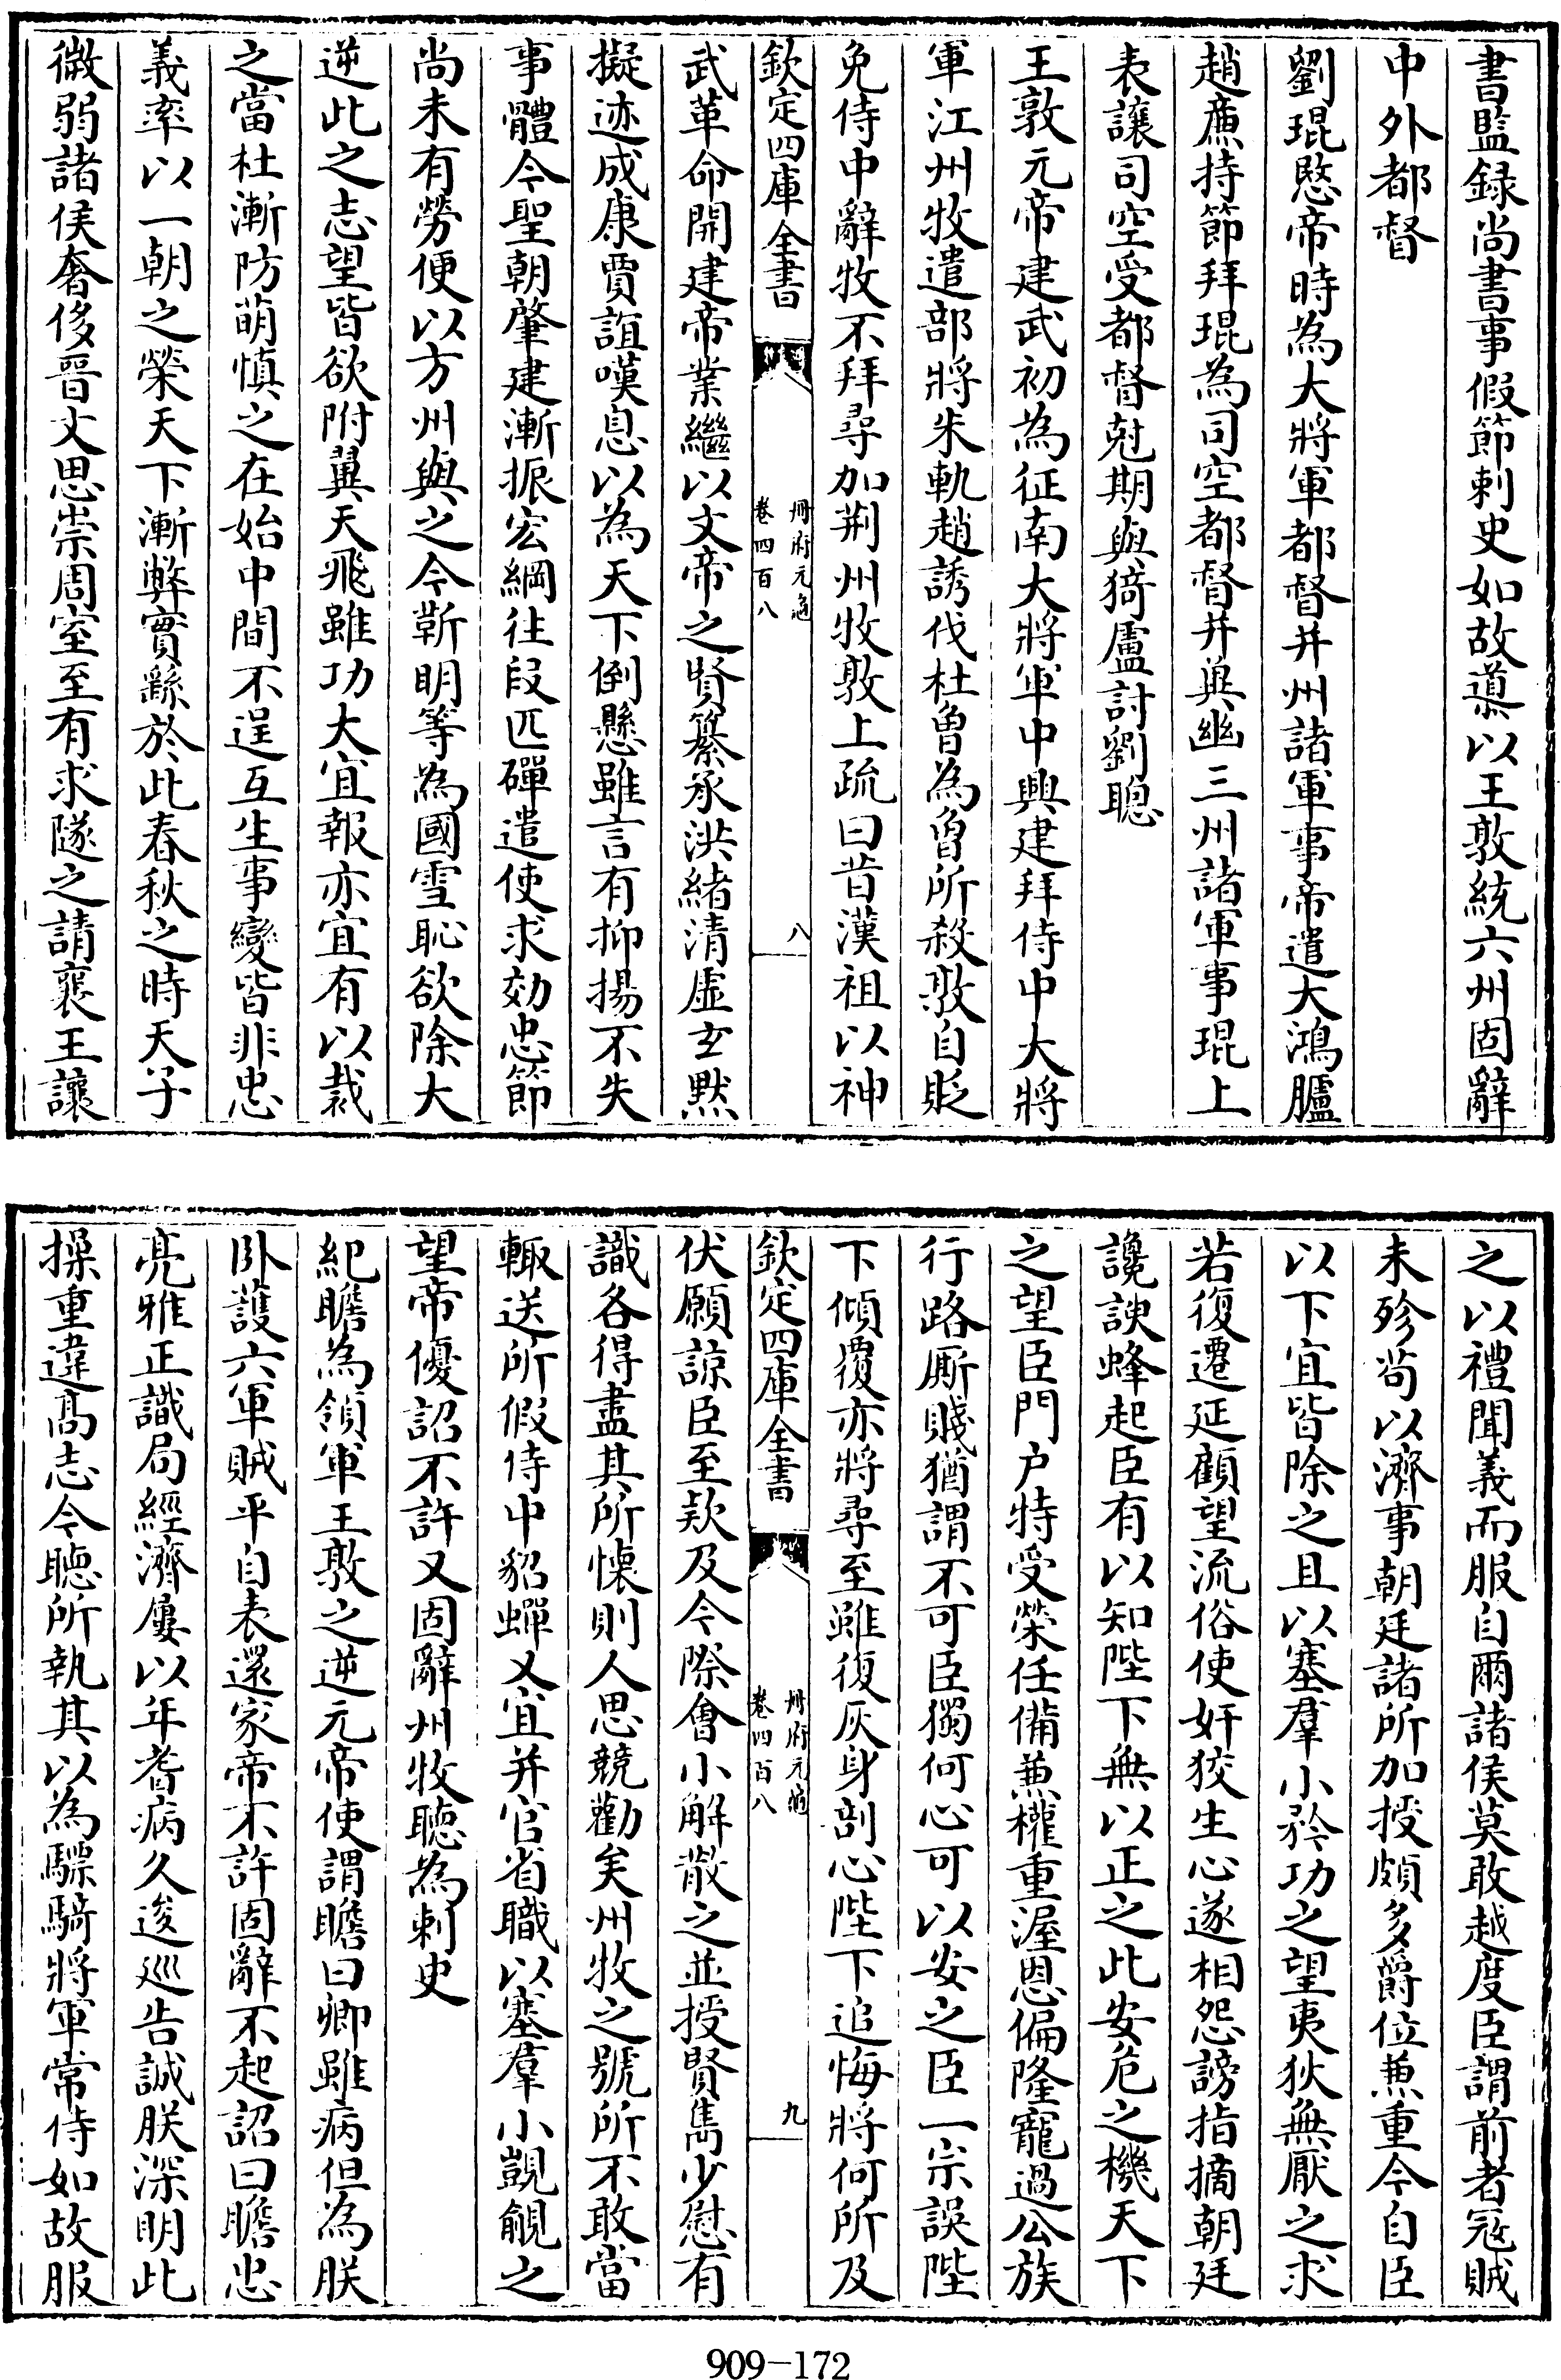 書監録尚書事假節刺史如故導以王敦統六州固辭
中外都督
劉琨愍帝時為大將軍都督并州諸軍事帝遣大鴻臚
趙廉持節拜琨為司空都督并兾幽三州諸軍事琨上
表讓司空受都督尅期與猗盧討劉聰
王敦元帝建武初為征南大將軍中興建拜侍中大將
軍江州牧遣部將朱軌趙誘伐杜曾為曾所殺敦自貶
免侍中辭牧不拜尋加荆州牧敦上疏曰昔漢祖以神
欽定四庫全書
冊府元龜
卷四百八
八
武革命開建帝業繼以文帝之賢纂承洪緒清虛玄黙
擬迹成康賈誼嘆息以為天下倒懸雖言有抑揚不失
事體今聖朝肇建漸振宏綱往段匹磾遣使求効忠節
尚未有勞便以方州與之今靳明等為國雪恥欲除大
逆此之志望皆欲附翼天飛雖功大宜報亦宜有以裁
之當杜漸防萌慎之在始中間不逞互生事變皆非忠
義率以一朝之榮天下漸弊實繇於此春秋之時天子
微弱諸侯奢侈晉文思崇周室至有求隧之請襄王讓
之以禮聞義而服自爾諸侯莫敢越度臣謂前者冦賊
未殄茍以濟事朝廷諸所加授頗多爵位兼重今自臣
以下宜皆除之且以塞羣小矜功之望夷狄無厭之求
若復遷延顧望流俗使奸狡生心遂相怨謗指摘朝廷
讒諛蜂起臣有以知陛下無以正之此安危之機天下
之望臣門户特受榮任備兼權重渥恩偏隆寵過公族
行路厮賤猶謂不可臣獨何心可以安之臣一宗誤陛
下傾覆亦將尋至雖復灰身剖心陛下追悔將何所及
欽定四庫全書
冊府元龜
卷四百八
九
伏願諒臣至欵及今際會小解散之並授賢雋少慰有
識各得盡其所懷則人思競勸矣州牧之號所不敢當
輙送所假侍中貂蟬又宜并官省職以塞羣小覬覦之
望帝優詔不許又固辭州牧聽為刺史
紀瞻為領軍王敦之逆元帝使謂瞻曰卿雖病但為朕
卧䕶六軍賊平自表還家帝不許固辭不起詔曰瞻忠
亮雅正識局經濟屢以年耆病久逡廵告誠朕深明此
操重違髙志今聽所執其以為驃騎將軍常侍如故服
909-172